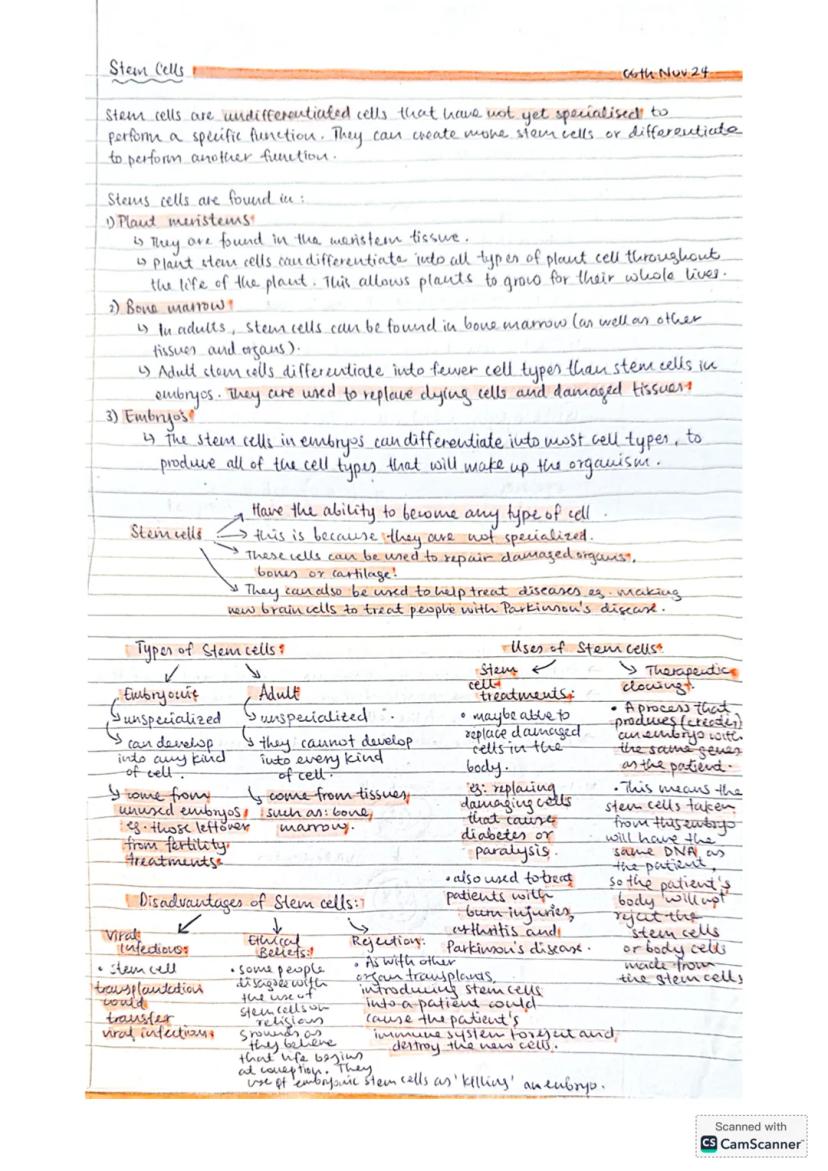 Stem Cells
06th Nov 24
Stem cells are undifferentiated cells that have not yet specialised to
perform a specific function. They can create more stem cells or differentiate
to perform another function.
Stems cells are found in:
1) Plant meristems
↳ They are found in the meristem tissue.
↳ Plant stem cells can differentiate into all types of plant cell throughout
the life of the plant. This allows plants to grow for their whole lives.
2) Bone marrow
↳ In adults, stem cells can be found in bone marrow (as well as other
tissues and organs).
↳ Adult stem cells differentiate into fewer cell types than stem cells in
embryos. They are used to replace dying cells and damaged tissues
3) Embryo's
↳ The stem cells in embryos can differentiate into most cell types, to
produce all of the cell types that will make up the organism.
Stem cells
→ Have the ability to become any type of cell.
→ this is because they are not specialized.
→ These cells can be used to repair damaged organs,
bones or cartilage.
→ They can also be used to help treat diseases eg. making
new brain cells to treat people with Parkinson's disease.
Types of Stem cells:
Embryonic
↳ unspecialized
↳ can develop
into any kind
of cell.
↳ come from
unused embryos,
eg. those leftover
from fertility
treatments.
Adult
↳ unspecialized
↳ they cannot develop
into every kind
of cell.
↳ come from tissues,
such as: bone
marrow.
Uses of Stem cells:
Stem
cell
treatments:
• maybe able to
replace damaged
cells in the
body.
eg: replacing
damaging cells
that cause
diabetes or
paralysis.
• also used to treat
patients with
burn injuries,
arthritis and
Parkinson's disease.
Therapeutic
cloning.
• A process that
produces (creates)
an embryo with
the same genes
as the patient.
• This means the
stem cells taken
from this embryo
will have the
same DNA as
the patient,
so the patient's
body will not
reject the
stem cells
or body cells
made from
the stem cells
Disadvantages of Stem cells:
Viral
Infections:
• stem cell
transplantation
could
transfer
viral infections
Ethical
Beliefs:
• some people
disagree with
the use of
stem cells on
religious
grounds as
they believe
that life begins
at conception. They
use of embryonic stem cells as 'killing' an embryo.
Rejection:
• As with other
organ transplants,
introducing stem cells
into a patient could
cause the patient's
immune system to reject and
destroy the new cells.
Scanned with
CS CamScanner